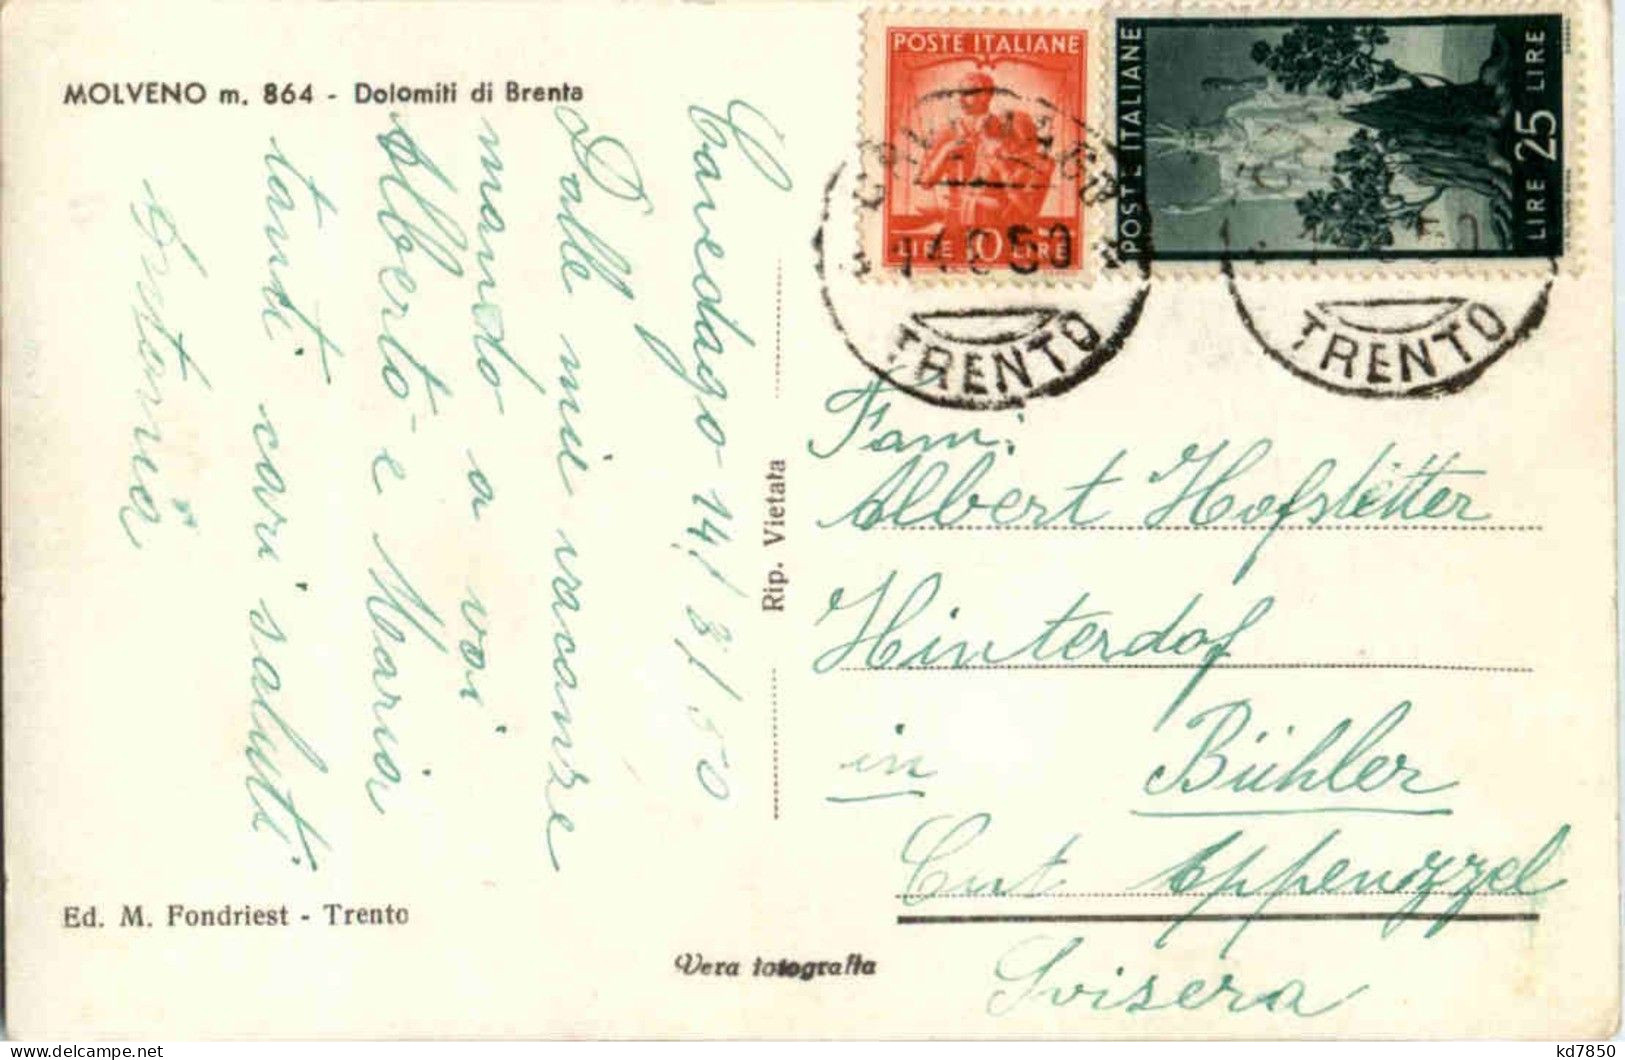 MOLVENO m. 864 - Dolomiti di Brenta
Cavedago 14/8/50
Dalle mie vacanze
mando a voi
Alberto e Maria
tanti cari saluti
Ed. M. Fondriest - Trento
Rip. Vietata
Vera fotografia
POSTE ITALIANE
LIRE 10 LIRE
POSTE ITALIANE
LIRE 25 LIRE
CAVEDAGO
14.8.50
TRENTO
TRENTO
Fam.
Albert Hofstetter
Hinterdorf
in Bühler
Cnt Appenzzel
Svizera
kd7850